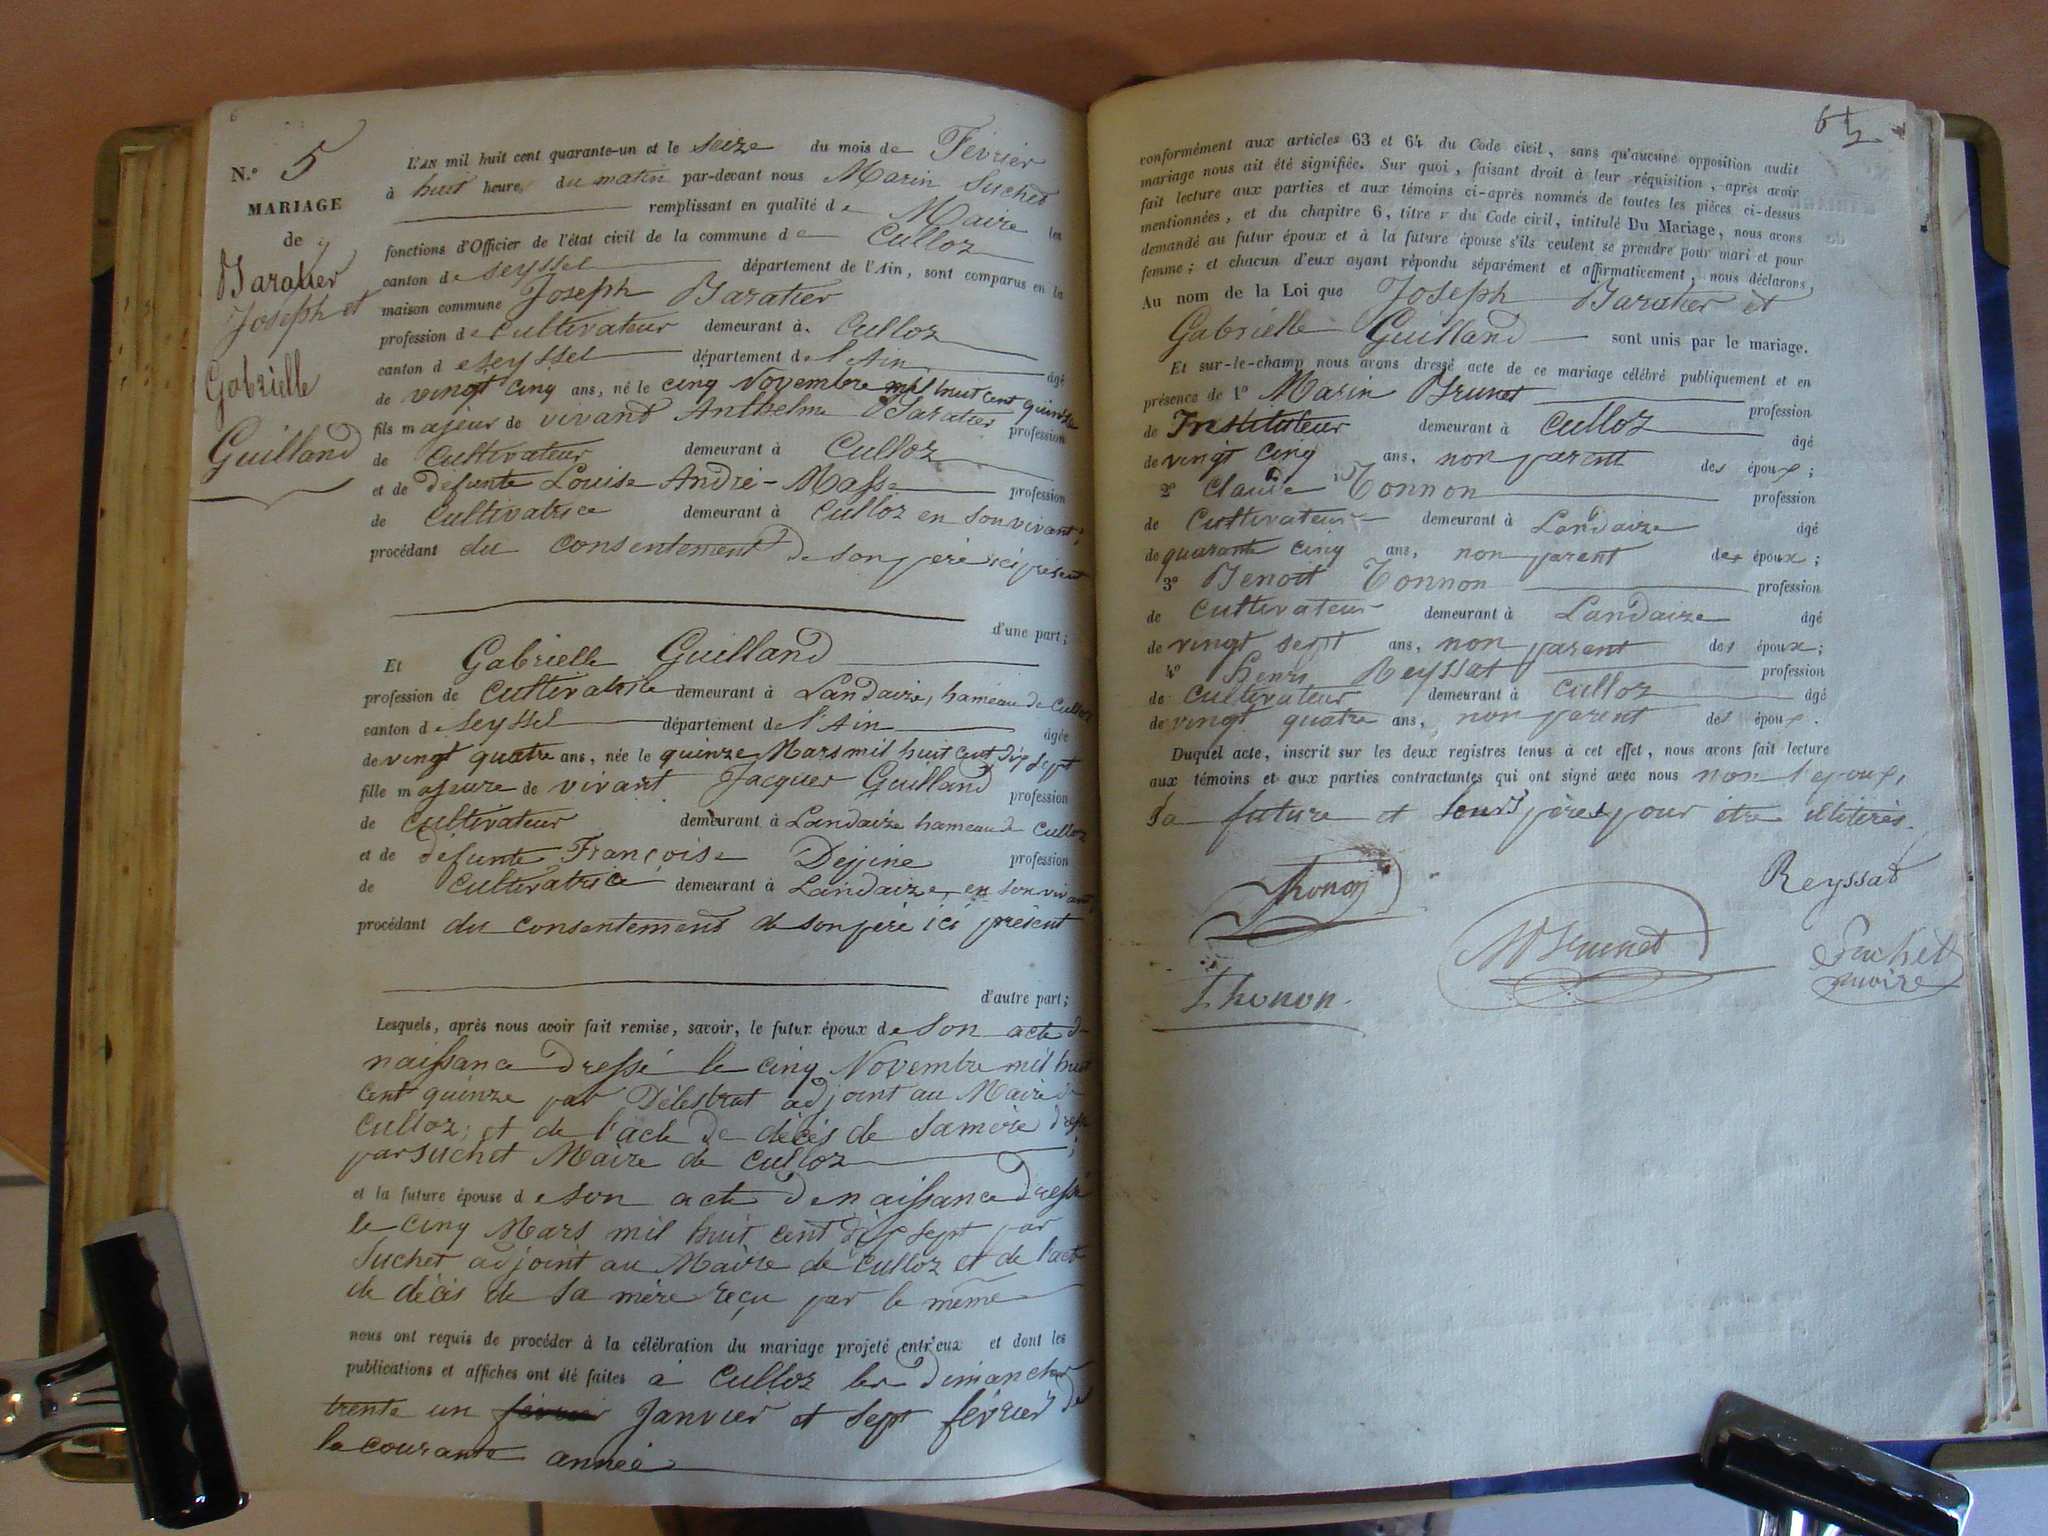 6
N.° 5
MARIAGE
de
Baratier
Joseph et
Gabrielle
Guilland
L'AN mil huit cent quarante-un et le seize du mois de Février
à huit heure, du matin par-devant nous Marin Suchet
remplissant en qualité de Maire les
fonctions d'Officier de l'état civil de la commune de Culloz
canton de Seyssel département de l'Ain, sont comparus en la
maison commune Joseph Baratier
profession de cultivateur demeurant à Culloz
canton de Seyssel département de l'Ain âgé
de vingt cinq ans, né le cinq Novembre mil huit cent quinze
fils majeur de vivant Anthelme Baratier profession
de cultivateur demeurant à Culloz
et de defunte Louise André-Masse profession
de cultivatrice demeurant à Culloz en son vivant;
procédant du consentement de son père ici présent
d'une part;
Et Gabrielle Guilland
profession de cultivatrice demeurant à Landaize, hameau de Culloz
canton de Seyssel département de l'Ain âgée
de vingt quatre ans, née le quinze Mars mil huit cent dix sept
fille majeure de vivant Jacques Guilland profession
de cultivateur demeurant à Landaize hameau de Culloz
et de defunte Françoise Dejjine profession
de cultivatrice demeurant à Landaize, en son vivant,
procédant du consentement de son père ici présent
d'autre part;
Lesquels, après nous avoir fait remise, savoir, le futur époux de son acte de
naissance dressé le cinq Novembre mil huit
cent quinze par Délestrat adjoint au Maire de
Culloz; et de l'acte de décès de sa mère dressé
par Suchet Maire de Culloz ;
et la future épouse de son acte de naissance dressé
le cinq Mars mil huit cent dix sept par
Suchet adjoint au Maire de Culloz et de l'acte
de décès de sa mère reçu par le même
nous ont requis de procéder à la célébration du mariage projeté entr'eux et dont les
publications et affiches ont été faites à Culloz les dimanches
trente un février Janvier et sept février de
la courante année
6 1/2
conformément aux articles 63 et 64 du Code civil, sans qu'aucune opposition audit
mariage nous ait été signifiée. Sur quoi, faisant droit à leur réquisition, après avoir
fait lecture aux parties et aux témoins ci-après nommés de toutes les pièces ci-dessus
mentionnées, et du chapitre 6, titre v du Code civil, intitulé Du Mariage, nous avons
demandé au futur époux et à la future épouse s'ils veulent se prendre pour mari et pour
femme; et chacun d'eux ayant répondu séparément et affirmativement, nous déclarons,
Au nom de la Loi que Joseph Baratier et
Gabrielle Guilland sont unis par le mariage.
Et sur-le-champ nous avons dressé acte de ce mariage célébré publiquement et en
présence de 1° Marin Brunet profession
de Instituteur demeurant à Culloz âgé
de vingt cinq ans, non parent des époux;
2° Claude Tonnon profession
de Cultivateur demeurant à Landaize âgé
de quarante cinq ans, non parent des époux;
3° Benoit Tonnon profession
de cultivateur demeurant à Landaize âgé
de vingt sept ans, non parent des époux;
4° Henri Reyssat profession
de cultivateur demeurant à Culloz âgé
de vingt quatre ans, non parent des époux.
Duquel acte, inscrit sur les deux registres tenus à cet effet, nous avons fait lecture
aux témoins et aux parties contractantes qui ont signé avec nous non l'époux,
la future et leurs pères pour être illitérés.
Thonon
Reyssat
M Brunet
Suchet
maire
Thonon